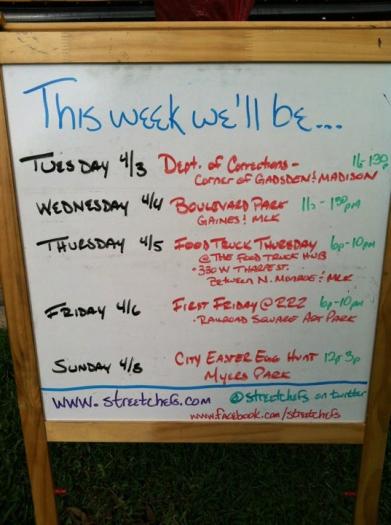 This week we'll be...
Tuesday 4/3 Dept. of Corrections - 11- 1:30
Corner of Gadsden & Madison
Wednesday 4/4 Boulevard Park 11- 1:30pm
Gaines & MLK
Thursday 4/5 Food Truck Thursday 6p-10pm
@ The Food Truck Hub
• 330 W Tharpe St.
Between N. Monroe & MLK
Friday 4/6 First Friday @ 222 6p-10pm
• Railroad Square Art Park
Sunday 4/8 City Easter Egg Hunt 12p-3p
Myers Park
www.streetchefs.com @streetchefs on twitter
www.facebook.com/streetchefs